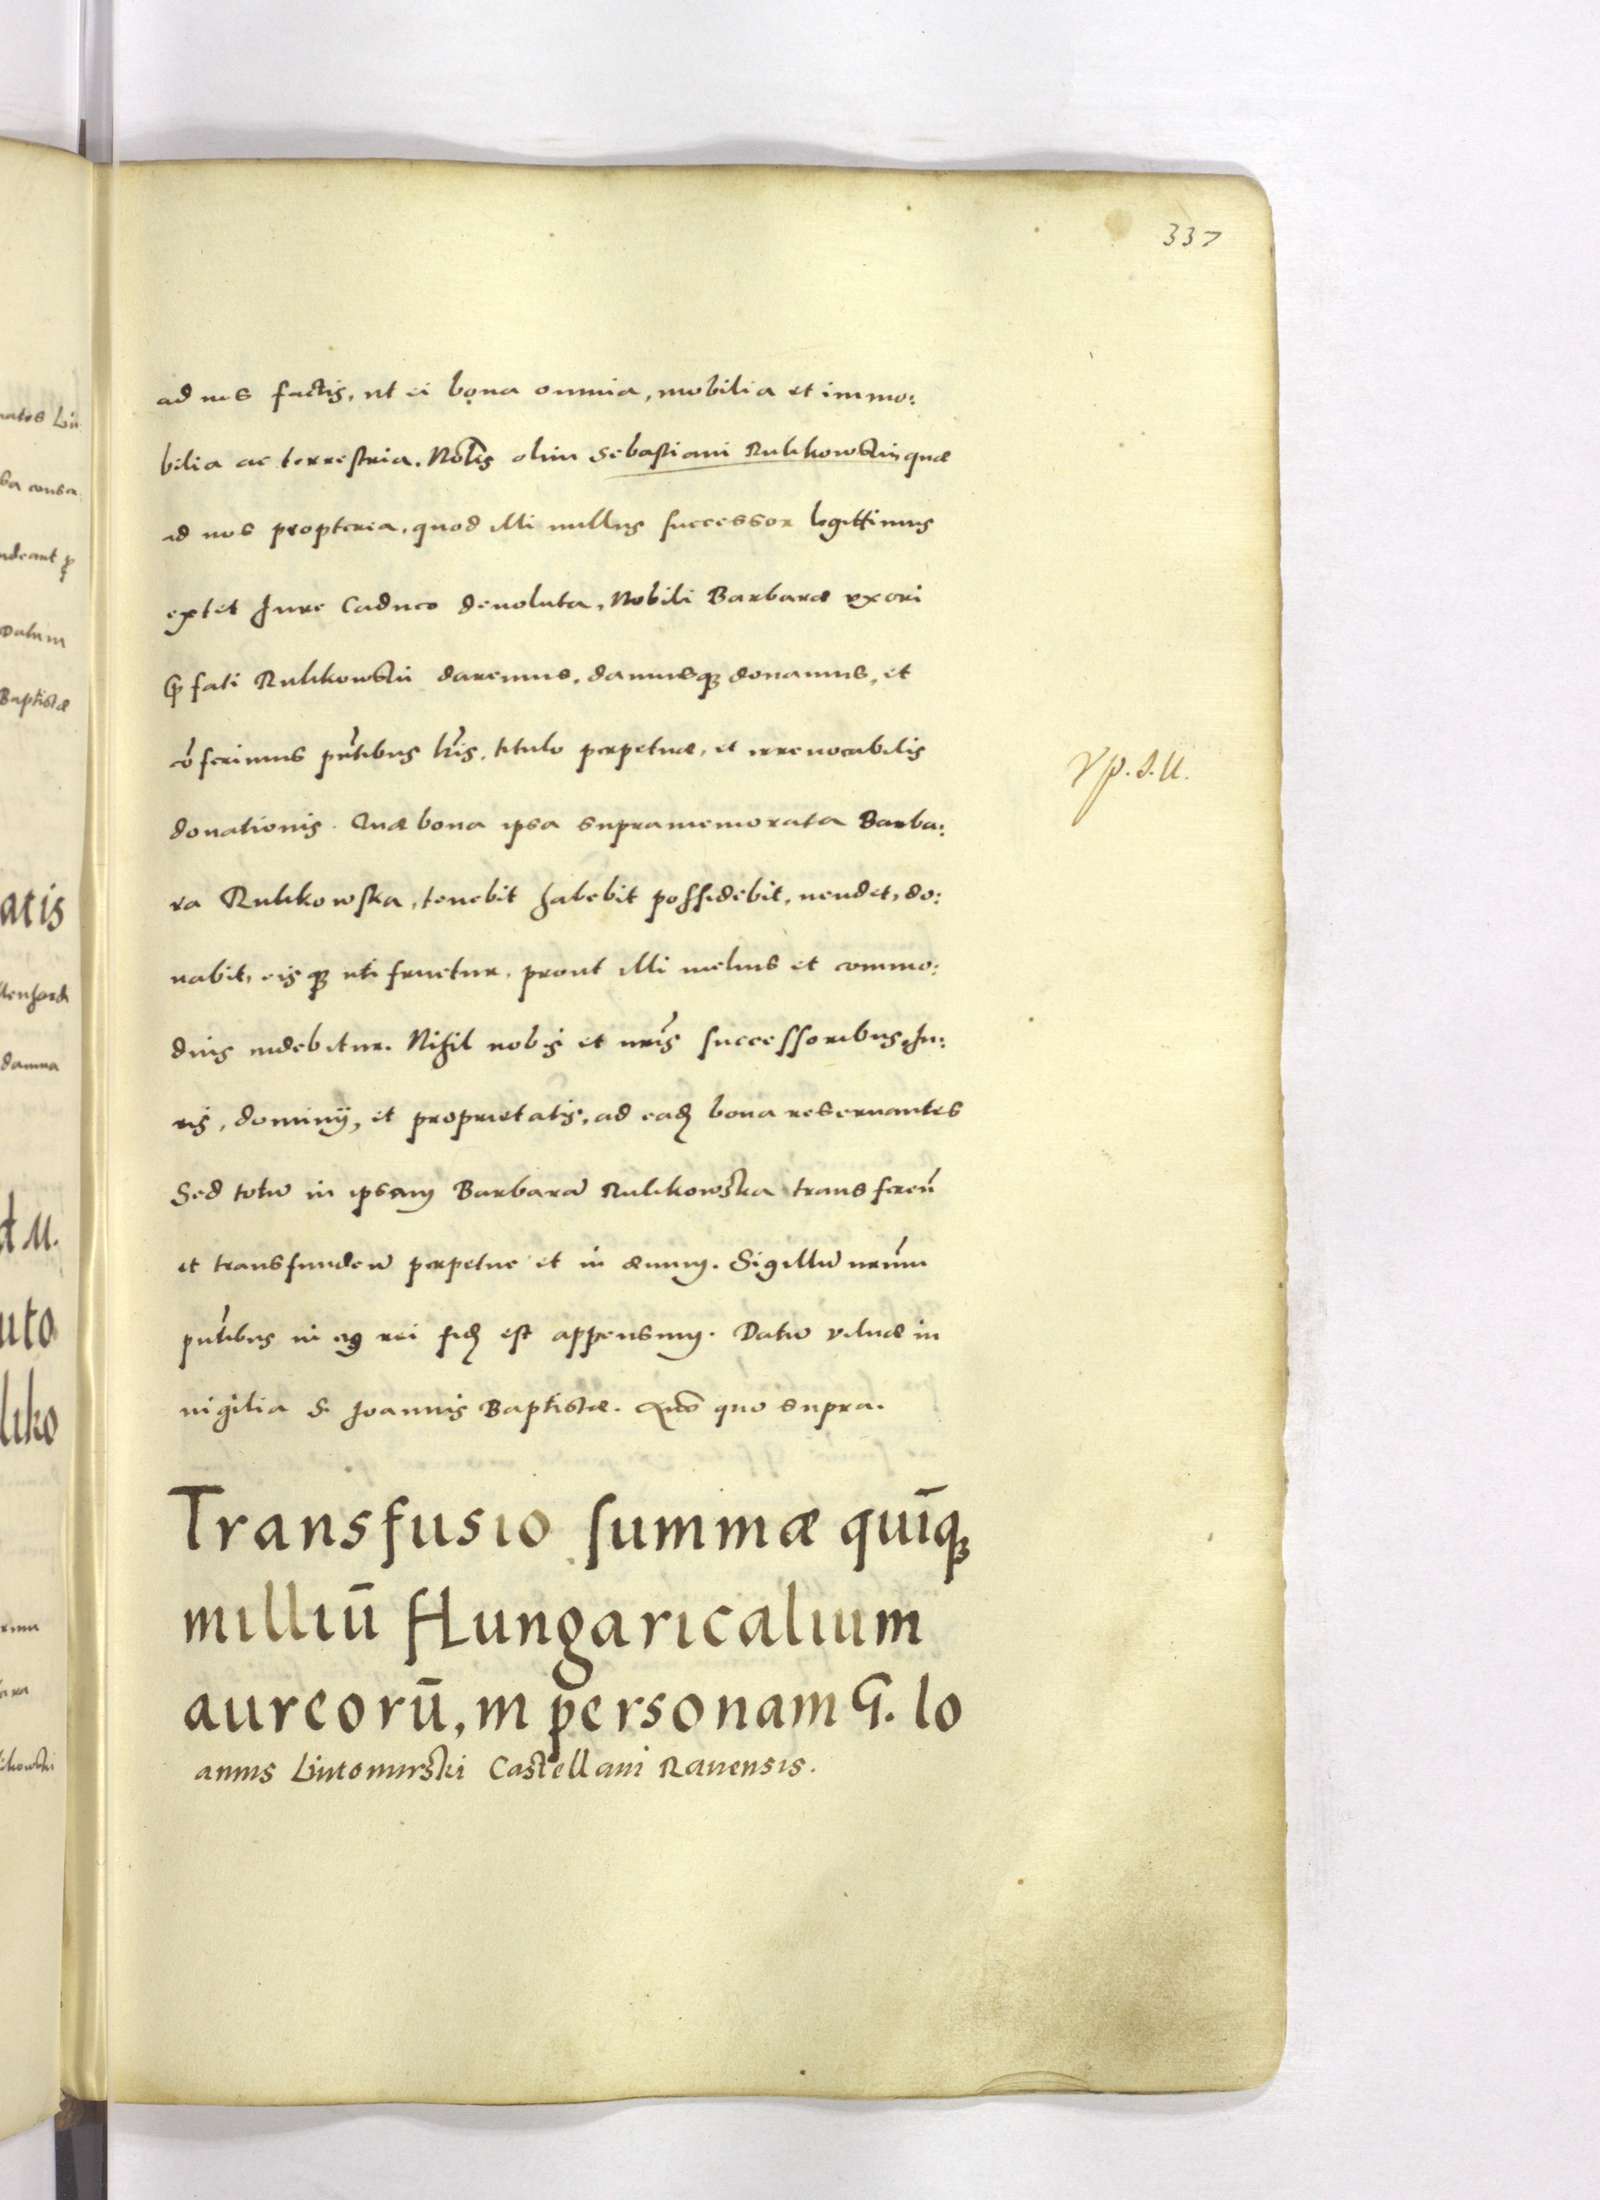 337
ad nos factis, ut ei bona omnia, mobilia et immo:
bilia ac terrestria. Nobilis olim Sebastiani Rulikowskij quæ
ad nos propterea, quod illi nullus successor legittimus
extet Jure Caduco devoluta, Nobili Barbaræ uxori
p̄fati Rulikowskij daremus, damusq; donamus, et
cōferimus pn̄tibus lr̄is, titulo perpetuæ, et irrevocabilis
donationis. Quæ bona ipsa supramemorata Barba:
ra Rulikowska, tenebit habebit possidebit, vendet, do:
nabit, eisq; uti fruetur, prout illi melius et commo:
dius videbitur. Nihil nobis et nr̄is successoribus, Ju:
ris, dominij, et proprietatis, ad eadem bona reservantes
Sed totū in ipsam Barbarā Rulikowska transferen̄
et transfunden̄ perpetue et in ævum. Sigillū nr̄um
pn̄tibus in eius rei fidem est appensum. Datū Vilnæ in
vigilia S. Joannis Baptistæ. Anno quo supra.
Transfusio summæ quīq;
milliū Hungaricalium
aureorū, in personam G. Io
annis Liutomirski Castellani Ravensis.